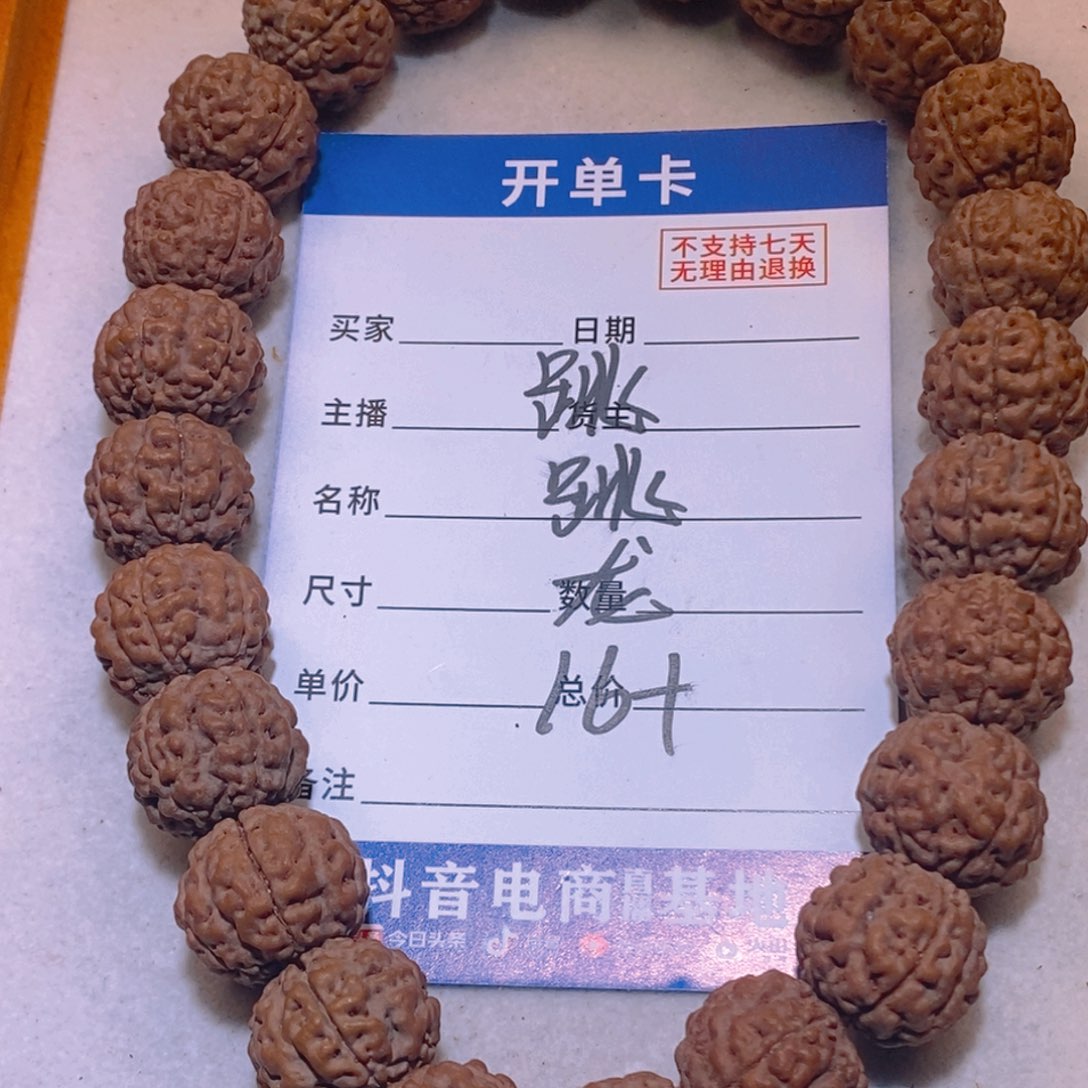 开单卡
不支持七天
无理由退换
买家 日期
跳
主播 货主
跳
名称
龙
尺寸 数量
16+
单价 总价
备注
抖音电商直播基地
今日头条